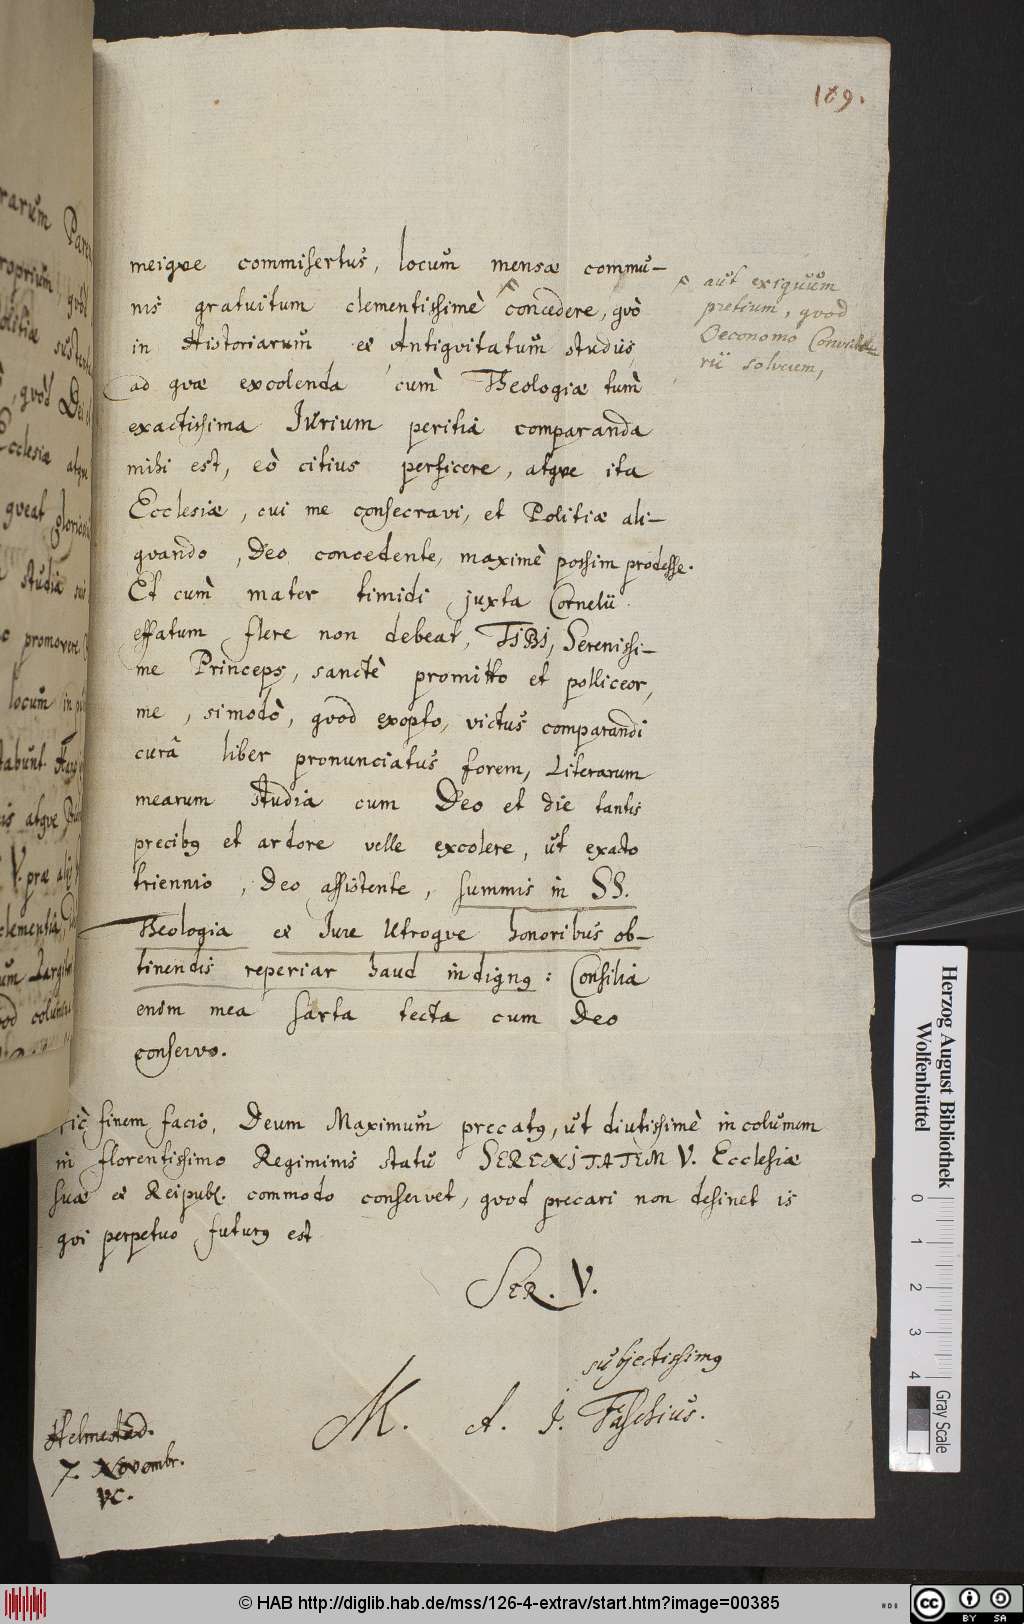 189.
meiqve commisertus, locum mensæ commu-
nis gratuitum clementissimè concedere, qvò
in Historiarum et Antiqvitatum studiis
ad qvæ excolenda cùm Theologiæ tùm
exactissima Jurium peritia comparanda
mihi est, eò citius perficere, atqve ita
Ecclesiæ, cui me consecravi, et Politiæ ali-
qvando, Deo concedente, maximè possim prodesse.
Et cùm mater timidi juxta Cornelii
effatum flere non debeat, TIBI, Serenissi-
me Princeps, sanctè promitto et polliceor,
me, simodò, qvod exopto, victus comparandi
curâ liber pronunciatus forem, Literarum
mearum studia cum Deo et die tantis
precibꝰ et ardore velle excolere, ut exacto
triennio, Deo assistente, summis in SS.
Theologia et Jure Utroqve honoribus ob-
tinendis reperiar haud indignꝰ: Consilia
enim mea sarta tecta cum Deo
conservo.
aut exiguum
pretium, qvod
Oeconomo
rii solvam,
Hic finem facio, Deum Maximum precatꝰ, ut diutissimè incolumem
in florentissimo Regiminis statu SERENITATEM V. Ecclesiæ
suæ et Reipubl. commodo conservet, qvod precari non desinet is
qvi perpetuo futurꝰ est
SER. V.
subjectissimꝰ
M. A. J. Faschius.
Helmestad.
7. Novembr.
rarum
Paren
roprium, qvòd
olitiæ
, qvòd Dei
Ecclesiæ atqve
qveat
studia sui
promovere
locum in
tabunt
is atqve
V. præ aliis
clementia,
um Largitor
od
Herzog August Bibliothek
Wolfenbüttel
0 1 2 3 4
Gray Scale
© HAB http://diglib.hab.de/mss/126-4-extrav/start.htm?image=00385
cc BY SA